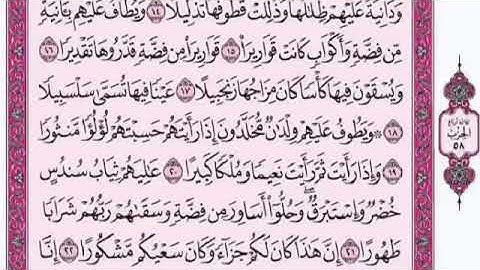 وَدَانِيَةً عَلَيْهِمْ ظِلَٰلُهَا وَذُلِّلَتْ قُطُوفُهَا تَذْلِيلًا ١٤ وَيُطَافُ عَلَيْهِم بِـَٔانِيَةٍ
مِّن فِضَّةٍ وَأَكْوَابٍ كَانَتْ قَوَارِيرَا۠ ١٥ قَوَارِيرَا۟ مِن فِضَّةٍ قَدَّرُوهَا تَقْدِيرًا ١٦
وَيُسْقَوْنَ فِيهَا كَأْسًا كَانَ مِزَاجُهَا زَنجَبِيلًا ١٧ عَيْنًا فِيهَا تُسَمَّىٰ سَلْسَبِيلًا
١٨ ۞ وَيَطُوفُ عَلَيْهِمْ وِلْدَٰنٌ مُّخَلَّدُونَ إِذَا رَأَيْتَهُمْ حَسِبْتَهُمْ لُؤْلُؤًا مَّنثُورًا
١٩ وَإِذَا رَأَيْتَ ثَمَّ رَأَيْتَ نَعِيمًا وَمُلْكًا كَبِيرًا ٢٠ عَٰلِيَهُمْ ثِيَابُ سُندُسٍ
خُضْرٌ وَإِسْتَبْرَقٌ ۖ وَحُلُّوٓا۟ أَسَاوِرَ مِن فِضَّةٍ وَسَقَىٰهُمْ رَبُّهُمْ شَرَابًا
طَهُورًا ٢١ إِنَّ هَٰذَا كَانَ لَكُمْ جَزَآءً وَكَانَ سَعْيُكُم مَّشْكُورًا ٢٢ إِنَّا
الحزب
٥٨